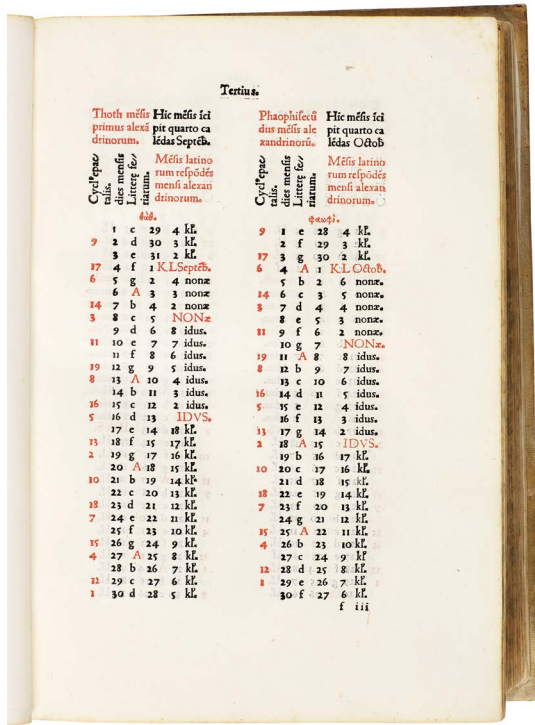 Tertius.
Thoth mẽsis
primus alexã
drinorum.
Hic mẽsis ĩci
pit quarto ca
lẽdas Septẽb.
Cycl⁹epac
talis.
dies mensis
Litterę fe/
riarum.
Mẽsis latino
rum respõdẽs
mensi alexan
drinorum.
θωθ.
1 c 29 4 kł.
9 2 d 30 3 kł.
3 e 31 2 kł.
17 4 f 1 K.L Septẽb.
6 5 g 2 4 nonæ
6 A 3 3 nonæ
14 7 b 4 2 nonæ
3 8 c 5 NONæ
9 d 6 8 idus.
11 10 e 7 7 idus.
11 f 8 6 idus.
19 12 g 9 5 idus.
8 13 A 10 4 idus.
14 b 11 3 idus.
16 15 c 12 2 idus.
5 16 d 13 IDVS.
17 e 14 18 kł.
13 18 f 15 17 kł.
2 19 g 17 16 kł.
20 A 18 15 kł.
10 21 b 19 14 kł.
22 c 20 13 kł.
18 23 d 21 12 kł.
7 24 e 22 11 kł.
25 f 23 10 kł.
15 26 g 24 9 kł.
4 27 A 25 8 kł.
28 b 26 7 kł.
12 29 c 27 6 kł.
1 30 d 28 5 kł.
Phaophi secũ
dus mẽsis ale
xandrinorũ.
Hic mẽsis ĩci
pit quarto ca
lẽdas Octob̃
Cycl⁹epac
talis.
dies mensis
Litterę fe/
riarum.
Mẽsis latino
rum respõdẽs
mensi alexan
drinorum.
φαωφί.
9 1 e 28 4 kł.
2 f 29 3 kł.
17 3 g 30 2 kł.
6 4 A 1 K.L Octob̃.
5 b 2 6 nonæ.
14 6 c 3 5 nonæ.
3 7 d 4 4 nonæ.
8 e 5 3 nonæ.
11 9 f 6 2 nonæ.
10 g 7 NONæ.
19 11 A 8 8 idus.
8 12 b 9 7 idus.
13 c 10 6 idus.
16 14 d 11 5 idus.
5 15 e 12 4 idus.
16 f 13 3 idus.
13 17 g 14 2 idus.
2 18 A 15 IDVS.
19 b 16 17 kł.
10 20 c 17 16 kł.
21 d 18 15 kł.
18 22 e 19 14 kł.
7 23 f 20 13 kł.
24 g 21 12 kł.
15 25 A 22 11 kł.
4 26 b 23 10 kł.
27 c 24 9 kł.
12 28 d 25 8 kł.
1 29 e 26 7 kł.
30 f 27 6 kł.
f iii